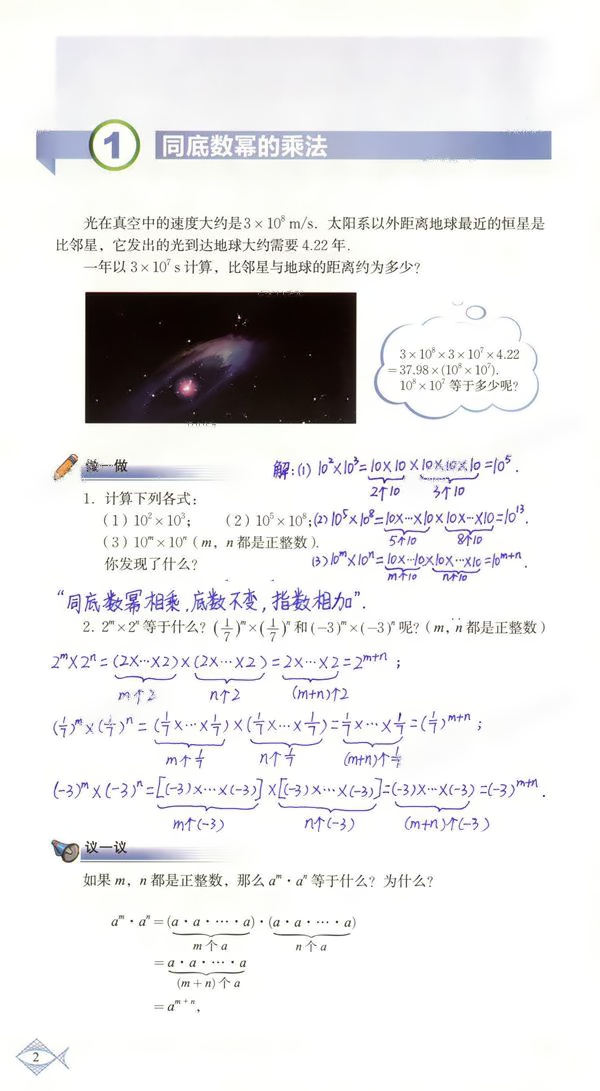 1 同底数幂的乘法
光在真空中的速度大约是3×10⁸ m/s. 太阳系以外距离地球最近的恒星是
比邻星，它发出的光到达地球大约需要 4.22 年.
一年以 3×10⁷ s 计算，比邻星与地球的距离约为多少？
3×10⁸×3×10⁷×4.22
=37.98×(10⁸×10⁷).
10⁸×10⁷ 等于多少呢？
做一做
解:(1) 10²×10³=10×10×10×10×10=10⁵.
2个10 3个10
1. 计算下列各式：
（1）10²×10³； （2）10⁵×10⁸；
(2)10⁵×10⁸=10×…×10×10×…×10=10¹³.
5个10 8个10
（3）10ᵐ×10ⁿ（m，n 都是正整数）.
(3)10ᵐ×10ⁿ=10×…×10×10×…×10=10ᵐ⁺ⁿ.
m个10 n个10
你发现了什么？
“同底数幂相乘,底数不变,指数相加”.
2. 2ᵐ×2ⁿ 等于什么？(1/7)ᵐ×(1/7)ⁿ 和(−3)ᵐ×(−3)ⁿ 呢？（m，n 都是正整数）
2ᵐ×2ⁿ=(2×…×2)×(2×…×2)=2×…×2=2ᵐ⁺ⁿ;
m个2 n个2 (m+n)个2
(1/7)ᵐ×(1/7)ⁿ=(1/7×…×1/7)×(1/7×…×1/7)=1/7×…×1/7=(1/7)ᵐ⁺ⁿ;
m个1/7 n个1/7 (m+n)个1/7
(-3)ᵐ×(-3)ⁿ=[(-3)×…×(-3)]×[(-3)×…×(-3)]=(-3)×…×(-3)=(-3)ᵐ⁺ⁿ.
m个(-3) n个(-3) (m+n)个(-3)
议一议
如果 m，n 都是正整数，那么 aᵐ·aⁿ 等于什么？为什么？
aᵐ·aⁿ=(a·a·…·a)·(a·a·…·a)
m个a n个a
=a·a·…·a
(m+n)个a
=aᵐ⁺ⁿ,
2